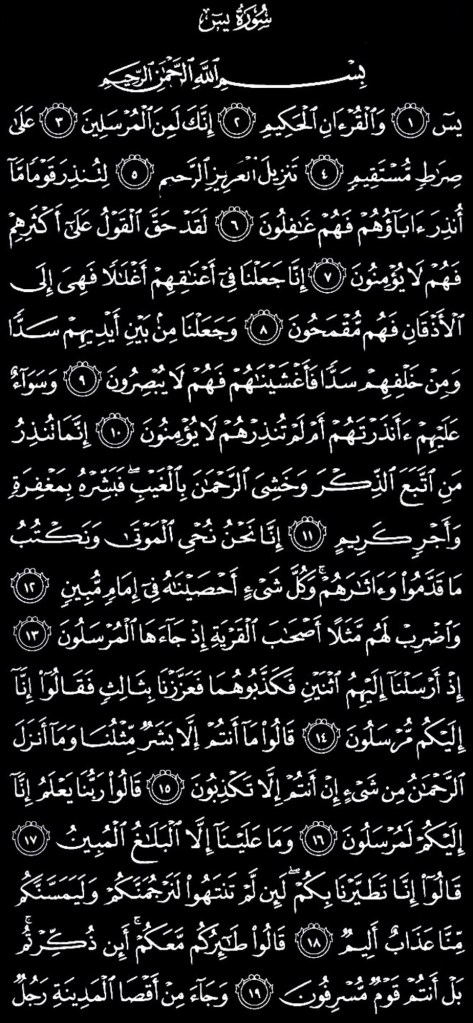 سُورَةُ يسٓ
بِسْمِ ٱللَّهِ ٱلرَّحْمَٰنِ ٱلرَّحِيمِ
يسٓ ١ وَٱلْقُرْءَانِ ٱلْحَكِيمِ ٢ إِنَّكَ لَمِنَ ٱلْمُرْسَلِينَ ٣ عَلَىٰ
صِرَٰطٍ مُّسْتَقِيمٍ ٤ تَنزِيلَ ٱلْعَزِيزِ ٱلرَّحِيمِ ٥ لِتُنذِرَ قَوْمًا مَّآ
أُنذِرَ ءَابَآؤُهُمْ فَهُمْ غَٰفِلُونَ ٦ لَقَدْ حَقَّ ٱلْقَوْلُ عَلَىٰٓ أَكْثَرِهِمْ
فَهُمْ لَا يُؤْمِنُونَ ٧ إِنَّا جَعَلْنَا فِىٓ أَعْنَٰقِهِمْ أَغْلَٰلًا فَهِىَ إِلَى
ٱلْأَذْقَانِ فَهُم مُّقْمَحُونَ ٨ وَجَعَلْنَا مِنۢ بَيْنِ أَيْدِيهِمْ سَدًّا
وَمِنْ خَلْفِهِمْ سَدًّا فَأَغْشَيْنَٰهُمْ فَهُمْ لَا يُبْصِرُونَ ٩ وَسَوَآءٌ
عَلَيْهِمْ ءَأَنذَرْتَهُمْ أَمْ لَمْ تُنذِرْهُمْ لَا يُؤْمِنُونَ ١٠ إِنَّمَا تُنذِرُ
مَنِ ٱتَّبَعَ ٱلذِّكْرَ وَخَشِىَ ٱلرَّحْمَٰنَ بِٱلْغَيْبِ ۖ فَبَشِّرْهُ بِمَغْفِرَةٍ
وَأَجْرٍ كَرِيمٍ ١١ إِنَّا نَحْنُ نُحْىِ ٱلْمَوْتَىٰ وَنَكْتُبُ
مَا قَدَّمُوا۟ وَءَاثَٰرَهُمْ ۚ وَكُلَّ شَىْءٍ أَحْصَيْنَٰهُ فِىٓ إِمَامٍ مُّبِينٍ ١٢
وَٱضْرِبْ لَهُم مَّثَلًا أَصْحَٰبَ ٱلْقَرْيَةِ إِذْ جَآءَهَا ٱلْمُرْسَلُونَ ١٣
إِذْ أَرْسَلْنَآ إِلَيْهِمُ ٱثْنَيْنِ فَكَذَّبُوهُمَا فَعَزَّزْنَا بِثَالِثٍ فَقَالُوٓا۟ إِنَّآ
إِلَيْكُم مُّرْسَلُونَ ١٤ قَالُوا۟ مَآ أَنتُمْ إِلَّا بَشَرٌ مِّثْلُنَا وَمَآ أَنزَلَ
ٱلرَّحْمَٰنُ مِن شَىْءٍ إِنْ أَنتُمْ إِلَّا تَكْذِبُونَ ١٥ قَالُوا۟ رَبُّنَا يَعْلَمُ إِنَّآ
إِلَيْكُمْ لَمُرْسَلُونَ ١٦ وَمَا عَلَيْنَآ إِلَّا ٱلْبَلَٰغُ ٱلْمُبِينُ ١٧
قَالُوٓا۟ إِنَّا تَطَيَّرْنَا بِكُمْ ۖ لَئِن لَّمْ تَنتَهُوا۟ لَنَرْجُمَنَّكُمْ وَلَيَمَسَّنَّكُم
مِّنَّا عَذَابٌ أَلِيمٌ ١٨ قَالُوا۟ طَٰٓئِرُكُم مَّعَكُمْ ۚ أَئِن ذُكِّرْتُم ۚ
بَلْ أَنتُمْ قَوْمٌ مُّسْرِفُونَ ١٩ وَجَآءَ مِنْ أَقْصَا ٱلْمَدِينَةِ رَجُلٌ